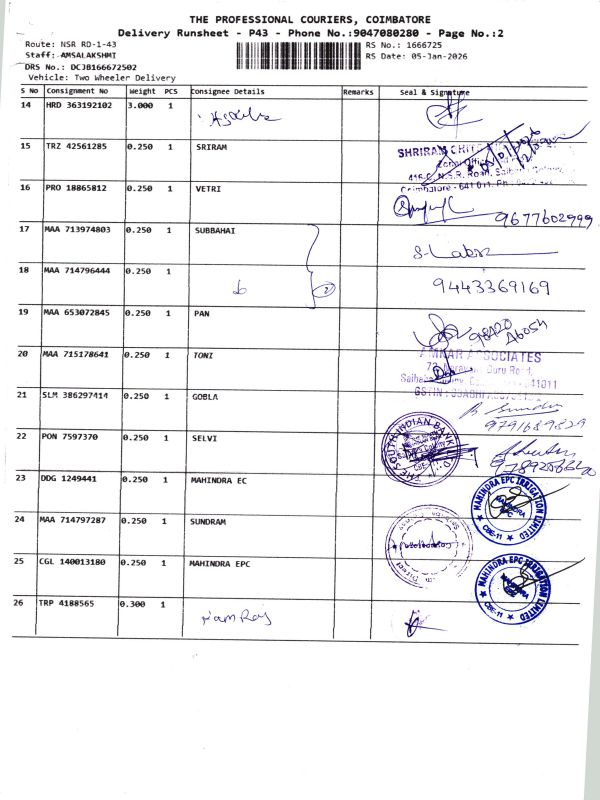 THE PROFESSIONAL COURIERS, COIMBATORE
Delivery Runsheet - P43 - Phone No.:9047080280 - Page No.:2
Route: NSR RD-1-43 RS No.: 1666725
Staff: AMSALAKSHMI RS Date: 05-Jan-2026
DRS No.: DCJB166672502
Vehicle: Two Wheeler Delivery
S No Consignment No Weight PCS Consignee Details Remarks Seal & Signature
14 HRD 363192102 3.000 1
15 TRZ 42561285 0.250 1 SRIRAM
SHRIRAM CHITS
416-C, N.S.R. Road, Saibaba
Coimbatore - 641 011. Ph
16 PRO 18865812 0.250 1 VETRI
9677602999
17 MAA 713974803 0.250 1 SUBBAHAI
18 MAA 714796444 0.250 1 2 9443369169
19 MAA 653072845 0.250 1 PAN
98420
46054
20 MAA 715178641 0.250 1 TONI
AMKAR ASSOCIATES
21 SLM 386297414 0.250 1 GOBLA
9791689829
22 PON 7597370 0.250 1 SELVI
THE SOUTH INDIAN BANK LTD
23 DDG 1249441 0.250 1 MAHINDRA EC
MAHINDRA EPC IRRIGATION LIMITED
CBE-11
24 MAA 714797287 0.250 1 SUNDRAM
25 CGL 140013180 0.250 1 MAHINDRA EPC
MAHINDRA EPC IRRIGATION LIMITED
CBE-11
26 TRP 4188565 0.300 1 Ram Raj